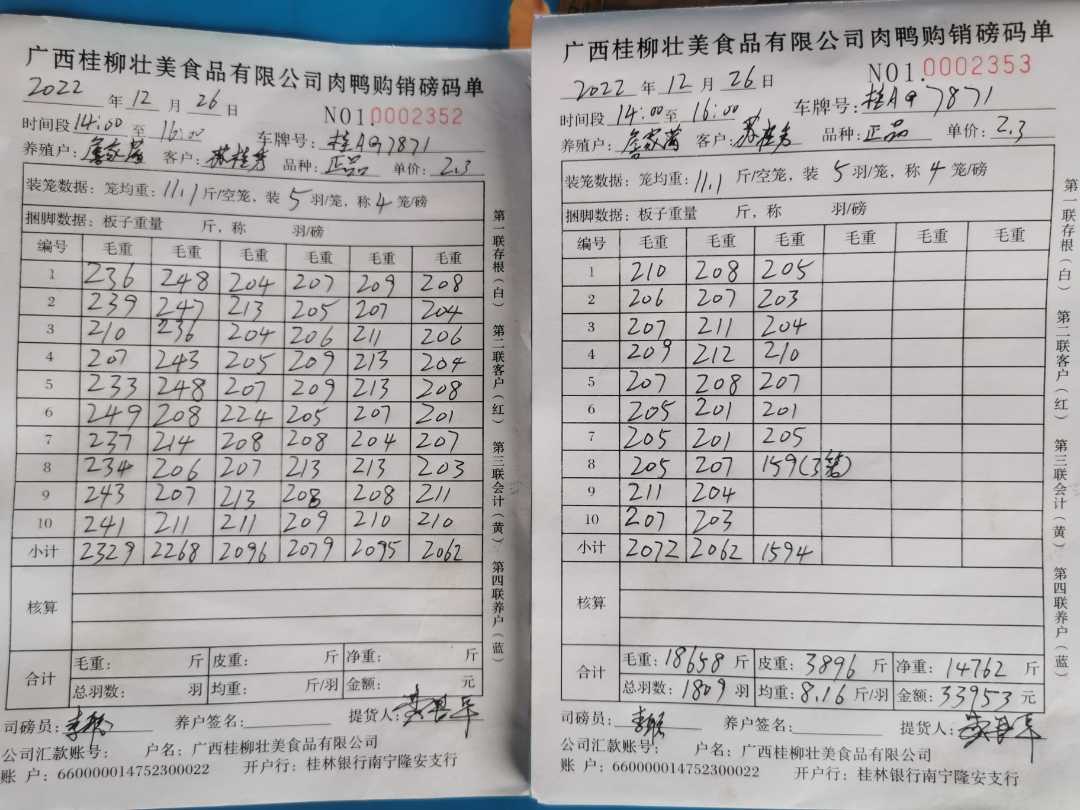 广西桂柳壮美食品有限公司肉鸭购销磅码单
2022 年 12 月 26 日
NO1.0002352
时间段 14:00 至 16:00 车牌号: 桂AQ7871
养殖户: 客户: 苏桂芳 品种: 正品 单价: 2.3
装笼数据: 笼均重: 11.1 斤/空笼, 装 5 羽/笼, 称 4 笼/磅
捆脚数据: 板子重量 斤, 称 羽/磅
编号 毛重 毛重 毛重 毛重 毛重 毛重
1 236 248 204 207 209 208
2 239 247 213 205 207 204
3 210 236 204 206 211 206
4 207 243 205 209 213 204
5 233 248 207 209 213 208
6 249 208 224 205 207 201
7 237 214 208 208 204 207
8 234 206 207 213 213 203
9 243 207 213 208 208 211
10 241 211 211 209 210 210
小计 2329 2268 2096 2079 2095 2062
核算
合计 毛重: 斤 皮重: 斤 净重: 斤
总羽数: 羽 均重: 斤/羽 金额: 元
司磅员: 养户签名: 提货人:
公司汇款账号: 户名: 广西桂柳壮美食品有限公司
账 户: 660000014752300022 开户行: 桂林银行南宁隆安支行
第一联存根(白) 第二联客户(红) 第三联会计(黄) 第四联养户(蓝)
广西桂柳壮美食品有限公司肉鸭购销磅码单
2022 年 12 月 26 日
NO1.0002353
时间段 14:00 至 16:00 车牌号: 桂AQ7871
养殖户: 客户: 苏桂芳 品种: 正品 单价: 2.3
装笼数据: 笼均重: 11.1 斤/空笼, 装 5 羽/笼, 称 4 笼/磅
捆脚数据: 板子重量 斤, 称 羽/磅
编号 毛重 毛重 毛重 毛重 毛重 毛重
1 210 208 205
2 206 207 203
3 207 211 204
4 209 212 210
5 207 208 207
6 205 201 201
7 205 201 205
8 205 207 159(3笼)
9 211 204
10 207 203
小计 2072 2062 1594
核算
合计 毛重: 18658 斤 皮重: 3896 斤 净重: 14762 斤
总羽数: 1809 羽 均重: 8.16 斤/羽 金额: 33953 元
司磅员: 养户签名: 提货人:
公司汇款账号: 户名: 广西桂柳壮美食品有限公司
账 户: 660000014752300022 开户行: 桂林银行南宁隆安支行
第一联存根(白) 第二联客户(红) 第三联会计(黄) 第四联养户(蓝)